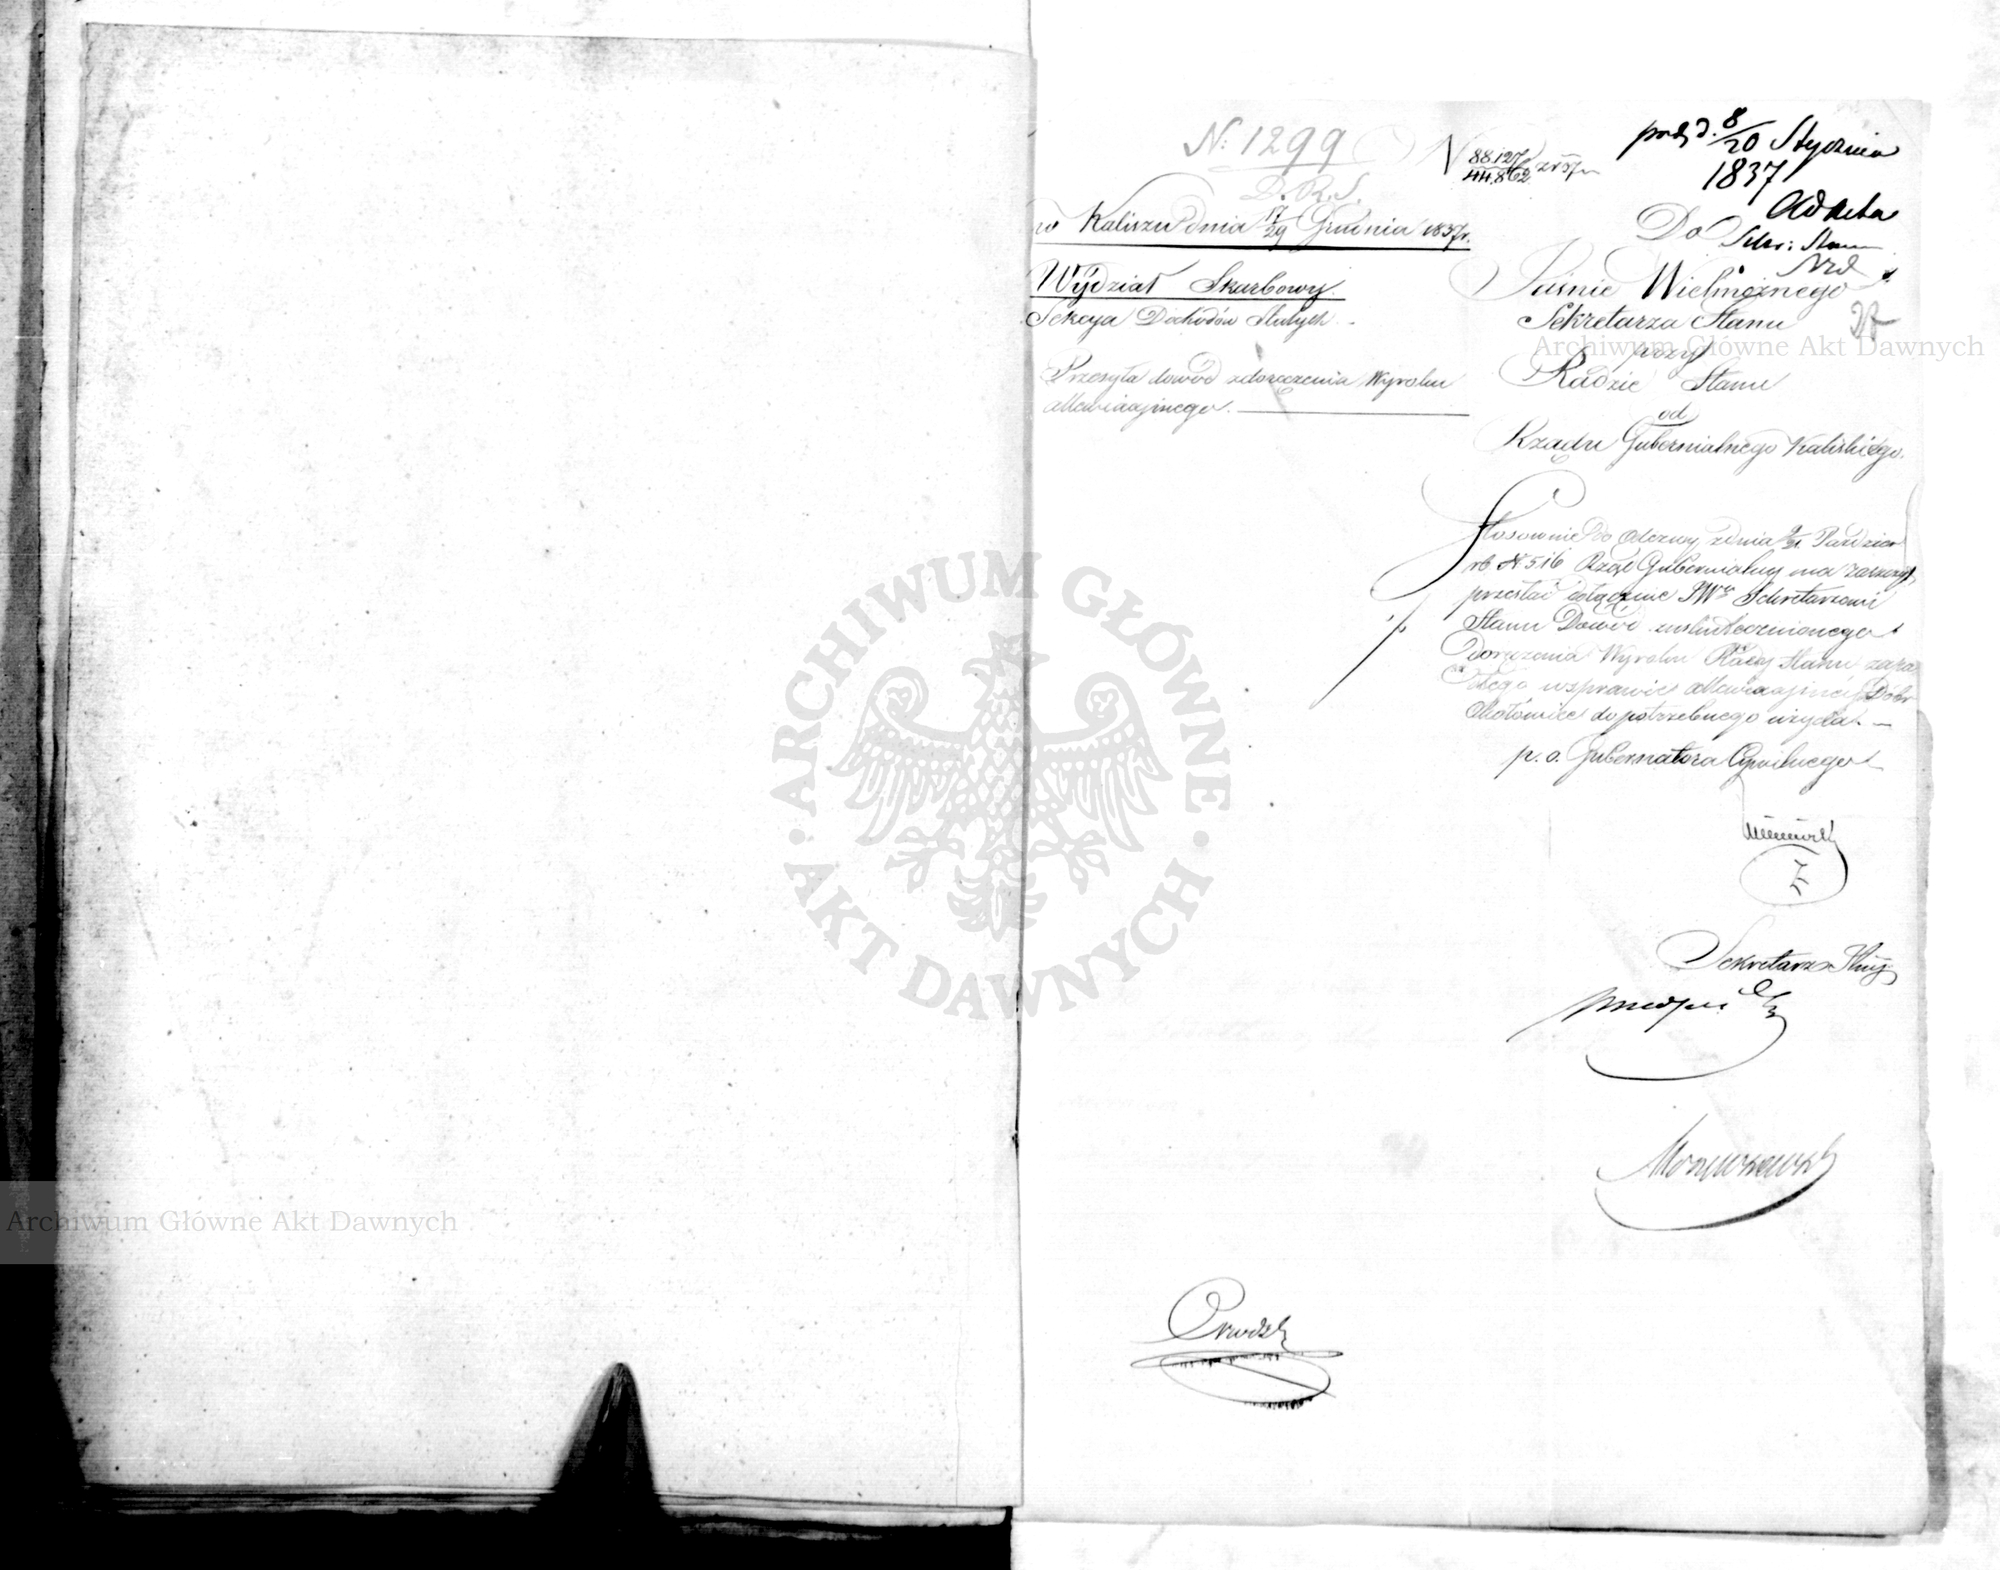 N: 1299
D.R.S.
N 88.127/44.862 z r 37
pod d. 8/20 Stycznia
1837
Ad Acta
Sekr: Stanu
w Kaliszu dnia 17/29 Grudnia 1837r.
Wydział Skarbowy.
Sekcya Dochodów Stałych.
Przesyła dowód z doręczenia Wyroku
Do
Jaśnie Wielmożnego
Sekretarza Stanu
przy
Radzie Stanu
od
Rządu Gubernialnego Kaliskiego.
Stosownie do Odezwy z dnia 9/21 Paździer
rb N 516 Rząd Gubernialny ma zaszczyt
przesłać dołącznie JWu Sekretarzowi
Stanu Dowód uskutecznionego
doręczenia Wyroku Rady Stanu
w sprawie Dóbr
do potrzebnego użycia. —
p. o. Gubernatora Cywilnego
Sekretarz
Archiwum Główne Akt Dawnych
Archiwum Główne Akt Dawnych
ARCHIWUM GŁÓWNE · AKT DAWNYCH ·